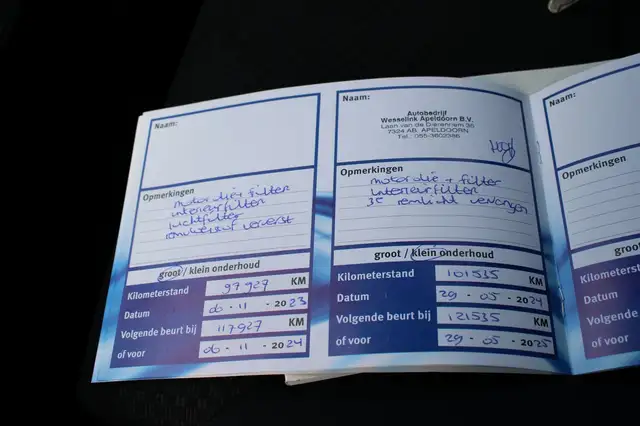 Naam:
Opmerkingen
motor olie + filter
interieurfilter
luchtfilter
remvloeistof ververst
groot / klein onderhoud
Kilometerstand 97927 KM
Datum 06 - 11 - 2023
Volgende beurt bij 117927 KM
of voor 06 - 11 - 2024
Naam:
Autobedrijf
Wesselink Apeldoorn B.V.
Laan van de Dierenriem 36
7324 AB APELDOORN
Tel.: 055-3602386
Opmerkingen
motor olie + filter
interieurfilter
3e remlicht vervangen
groot / klein onderhoud
Kilometerstand 101535 KM
Datum 29 - 05 - 2024
Volgende beurt bij 121535 KM
of voor 29 - 05 - 2025
Naam:
Opmerkingen
Kilometerstand
Datum
Volgende beurt
of voor